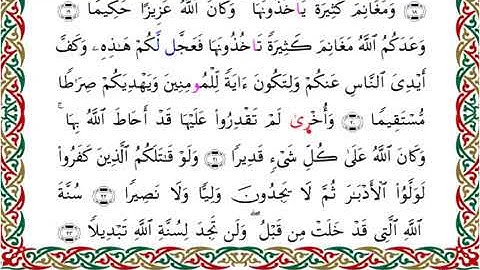 ۝١٨ وَمَغَانِمَ كَثِيرَةً يَاخُذُونَهَا وَكَانَ ٱللَّهُ عَزِيزًا حَكِيمًا ۝١٩
وَعَدَكُمُ ٱللَّهُ مَغَانِمَ كَثِيرَةً تَاخُذُونَهَا فَعَجَّل لَّكُمْ هَـٰذِهِۦ وَكَفَّ
أَيْدِىَ ٱلنَّاسِ عَنكُمْ وَلِتَكُونَ ءَايَةً لِّلْمُومِنِينَ وَيَهْدِيَكُمْ صِرَٰطًا
مُّسْتَقِيمًا ۝٢٠ وَأُخْرَىٰ لَمْ تَقْدِرُوا۟ عَلَيْهَا قَدْ أَحَاطَ ٱللَّهُ بِهَا ۚ
وَكَانَ ٱللَّهُ عَلَىٰ كُلِّ شَىْءٍ قَدِيرًا ۝٢١ وَلَوْ قَـٰتَلَكُمُ ٱلَّذِينَ كَفَرُوا۟
لَوَلَّوُا۟ ٱلْأَدْبَـٰرَ ثُمَّ لَا يَجِدُونَ وَلِيًّا وَلَا نَصِيرًا ۝٢٢ سُنَّةَ
ٱللَّهِ ٱلَّتِى قَدْ خَلَتْ مِن قَبْلُ ۖ وَلَن تَجِدَ لِسُنَّةِ ٱللَّهِ تَبْدِيلًا ۝٢٣